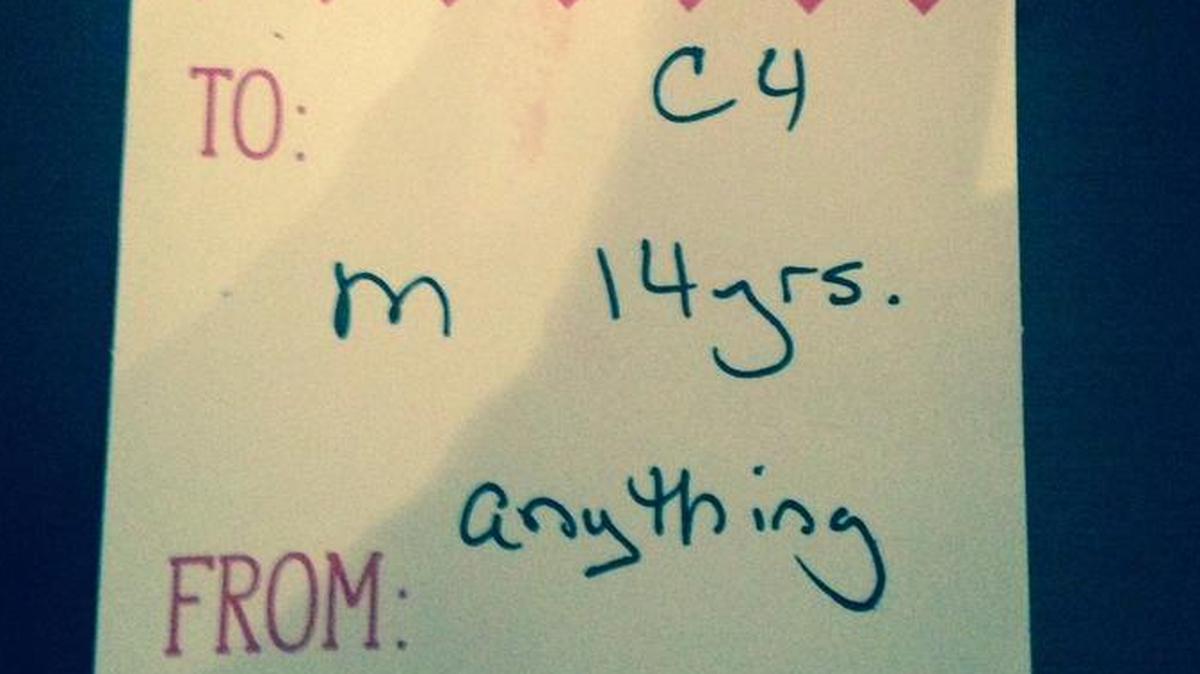 TO: C4
m 14yrs.
anything
FROM: